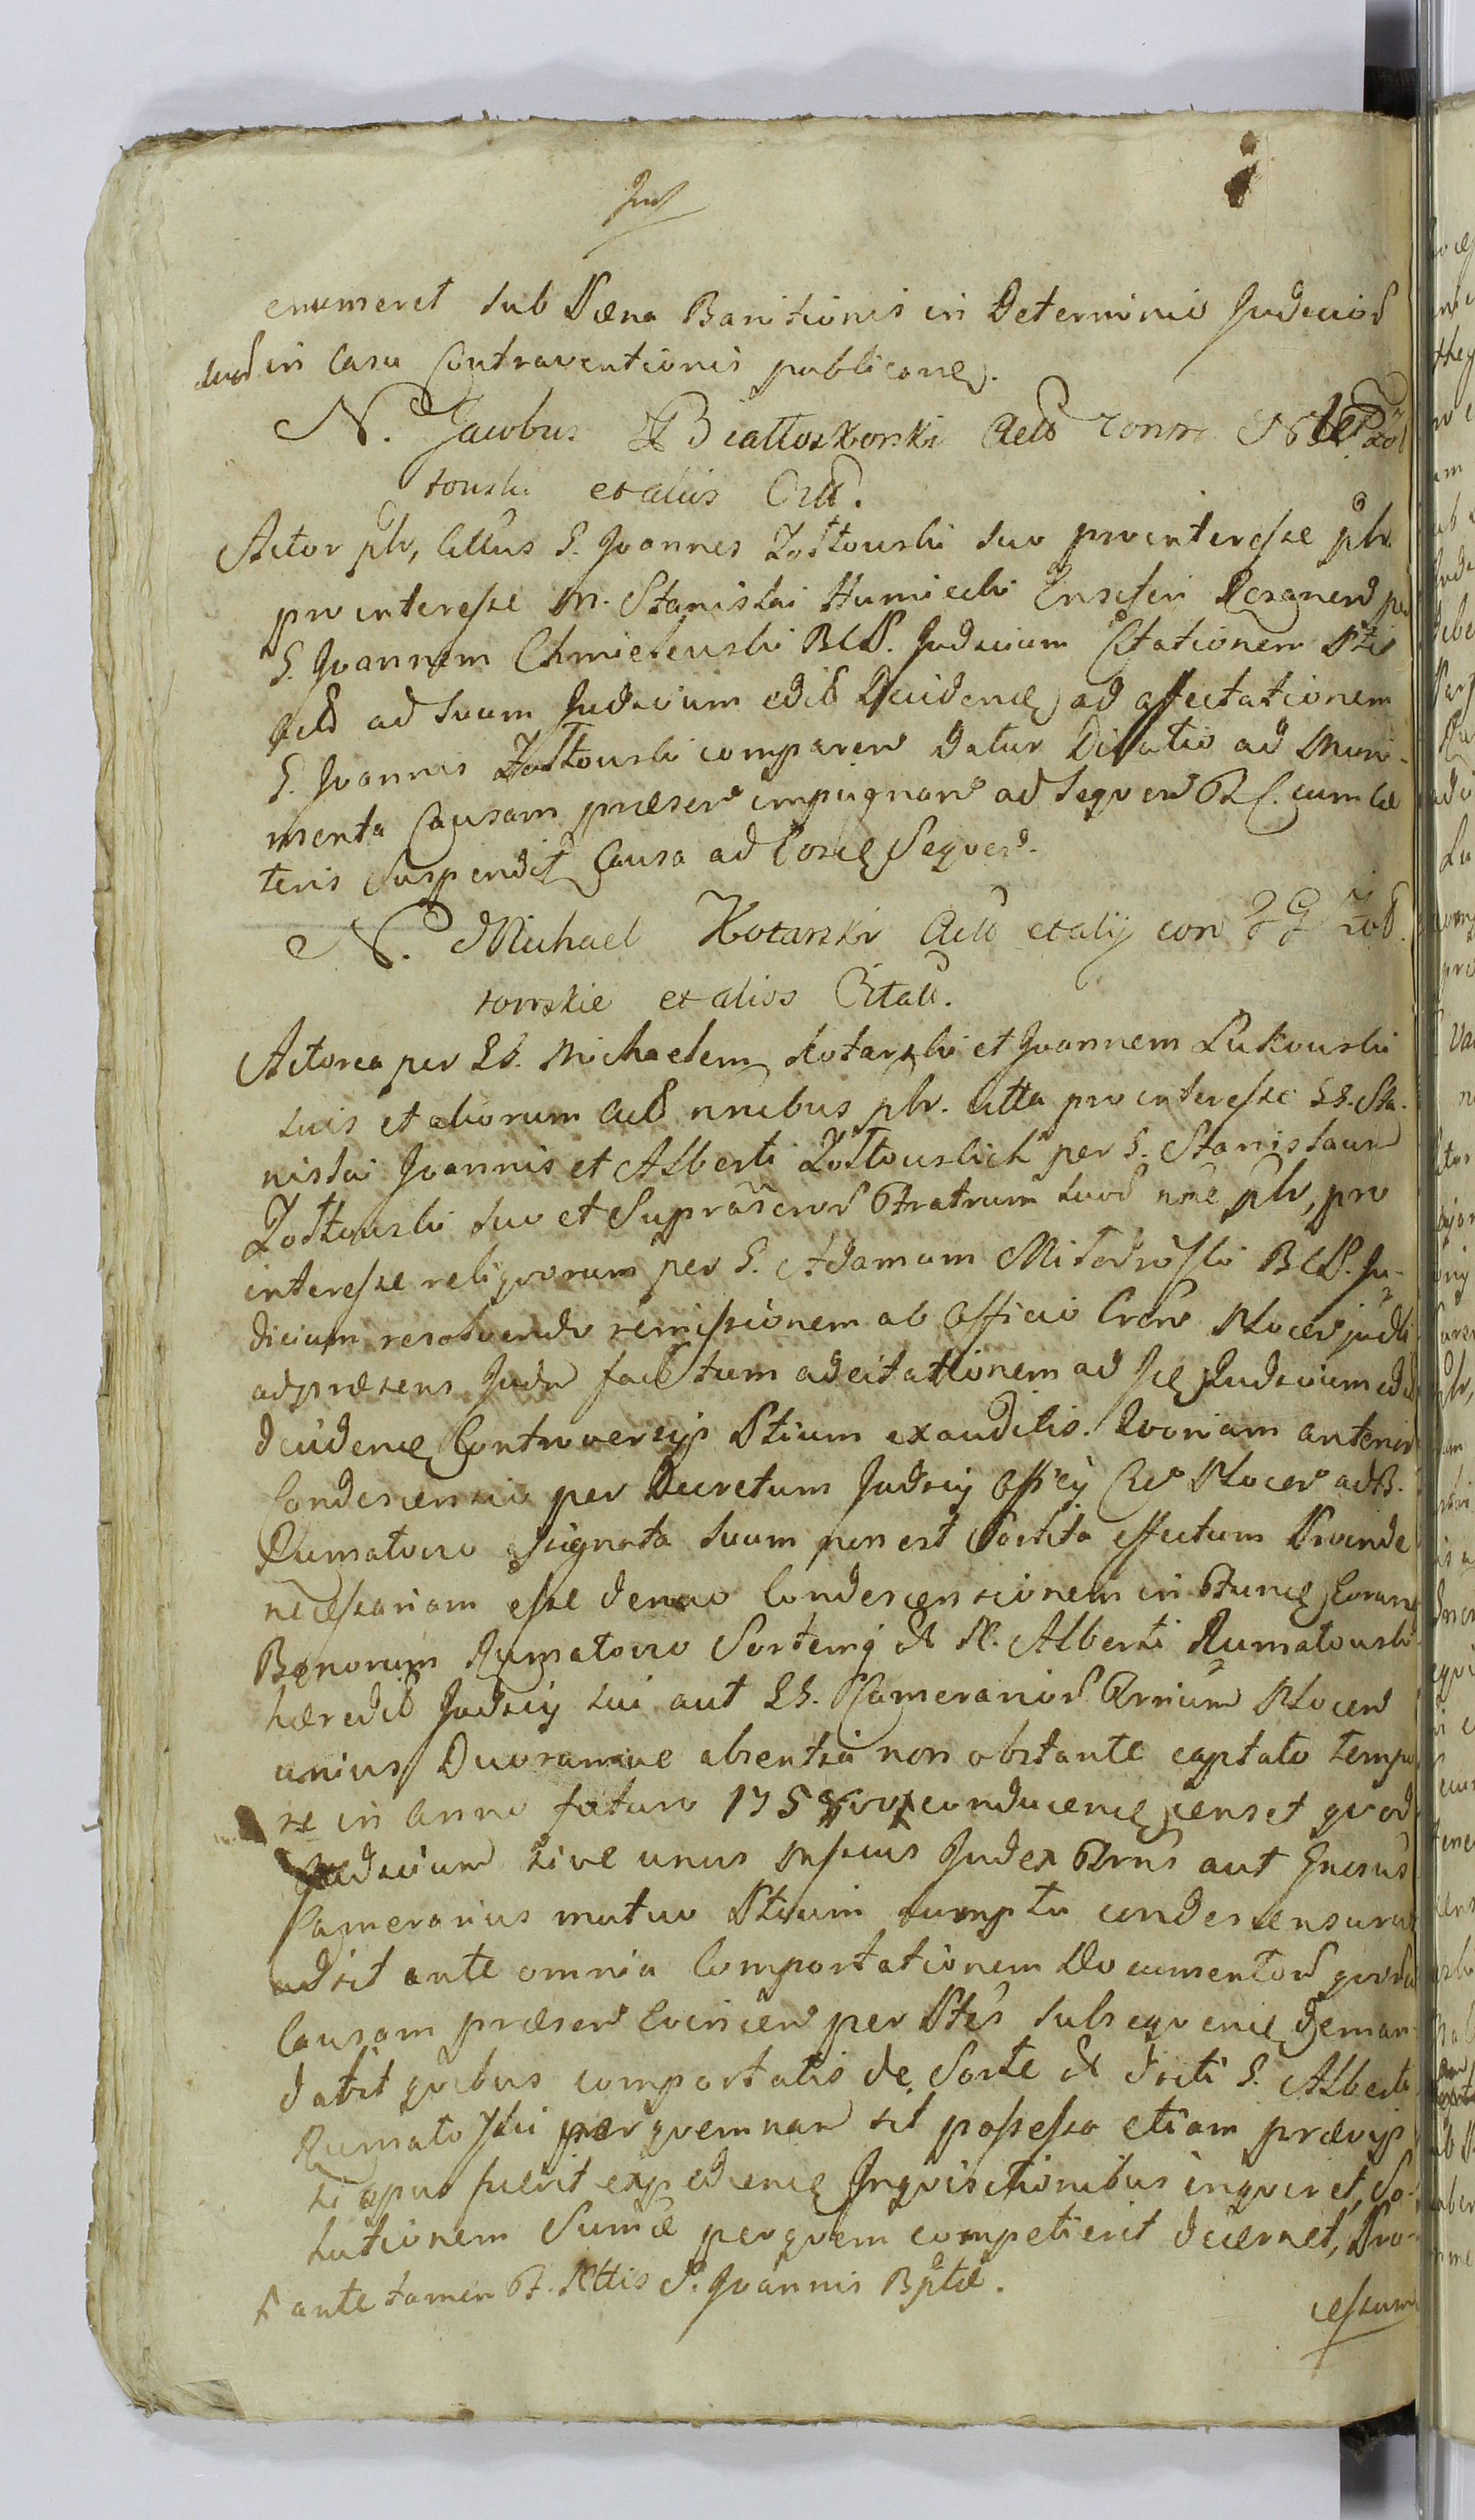 enumeret sub Pœna Banitionis in Determinio Judiciod
suod in Casu Contraventionis publicane.
N. Jacobus Białłoskorski Acto contra
towski et aliis Citt.
Actor plr, Cittus G. Joannes Zołtowski suo pro interesse plr.
pro interesse M. Stanislai Humiecki Ensiferi Rozanen per
G. Joannem Chmielewski BCP. Judicium Citationem Ptis
Acto ad suum Judicium edit Decidence ad affectationem
G. Joannis Zołtowski comparen datur Dilatio ad Muni-
menta Causam præsen impugnan ad sequen cum cæ
teris Suspendit Causa ad Eosce Sequen.
N. Michael Kotarski Acto et alij con GG Zoł.
towskie et alios Citatt.
Actorea per GG. Michaelem Kotarski et Joannem Lukowski
suis et aliorum Acto nnibus plr. Citta pro interesse GG. Sta-
nislai Joannis et Alberti Zołtowskich per G. Stanislaum
Zołtowski suo et Suprascrod Fratrum suod nne plr, pro
interesse reliquorum per G. Adamum Milodroski BCP. Ju-
dicium resolvendo remissionem ab Officio Cren Plocen judli
ad præsens Judm factum ad citationem ad sce Judicium edit
decidence Controversijs Ptium exauditis. Quoniam anterior
Condescensio per Decretum Judicij Officij Cre Plocen ad B.
Rumatowo assignata suum non est sortita effectum Proinde
necessariam esse denuo Condescensionem in Func Eorune
Bonorum Rumatowo Sortemq N. Alberti Rumatowski
hæredit Judicij sui aut GG. Cameranod Plocen
unius Duorumve absentia non obstante captato tempo
re in anno futuro 175 conducence censet quod
Judicium sive unus Ipsius Judex aut Gnosus
Camerarius mutuo Ptium sumptu condescensurus
adsit ante omnia Comportationem Documentod quoru
Causam præsen Evincen per Ptes subsequence deman-
dabit quibus comportatis de Sorte dicti G. Alberti
Rumatoski per quemnam sit possessa etiam prævijs
si opus fuerit expedience Inquisitionibus inquiret, So-
lutionem Summæ per quem competierit decernet, Pro-
ante tamen F. Nttis S. Joannis Bptæ.
cessum